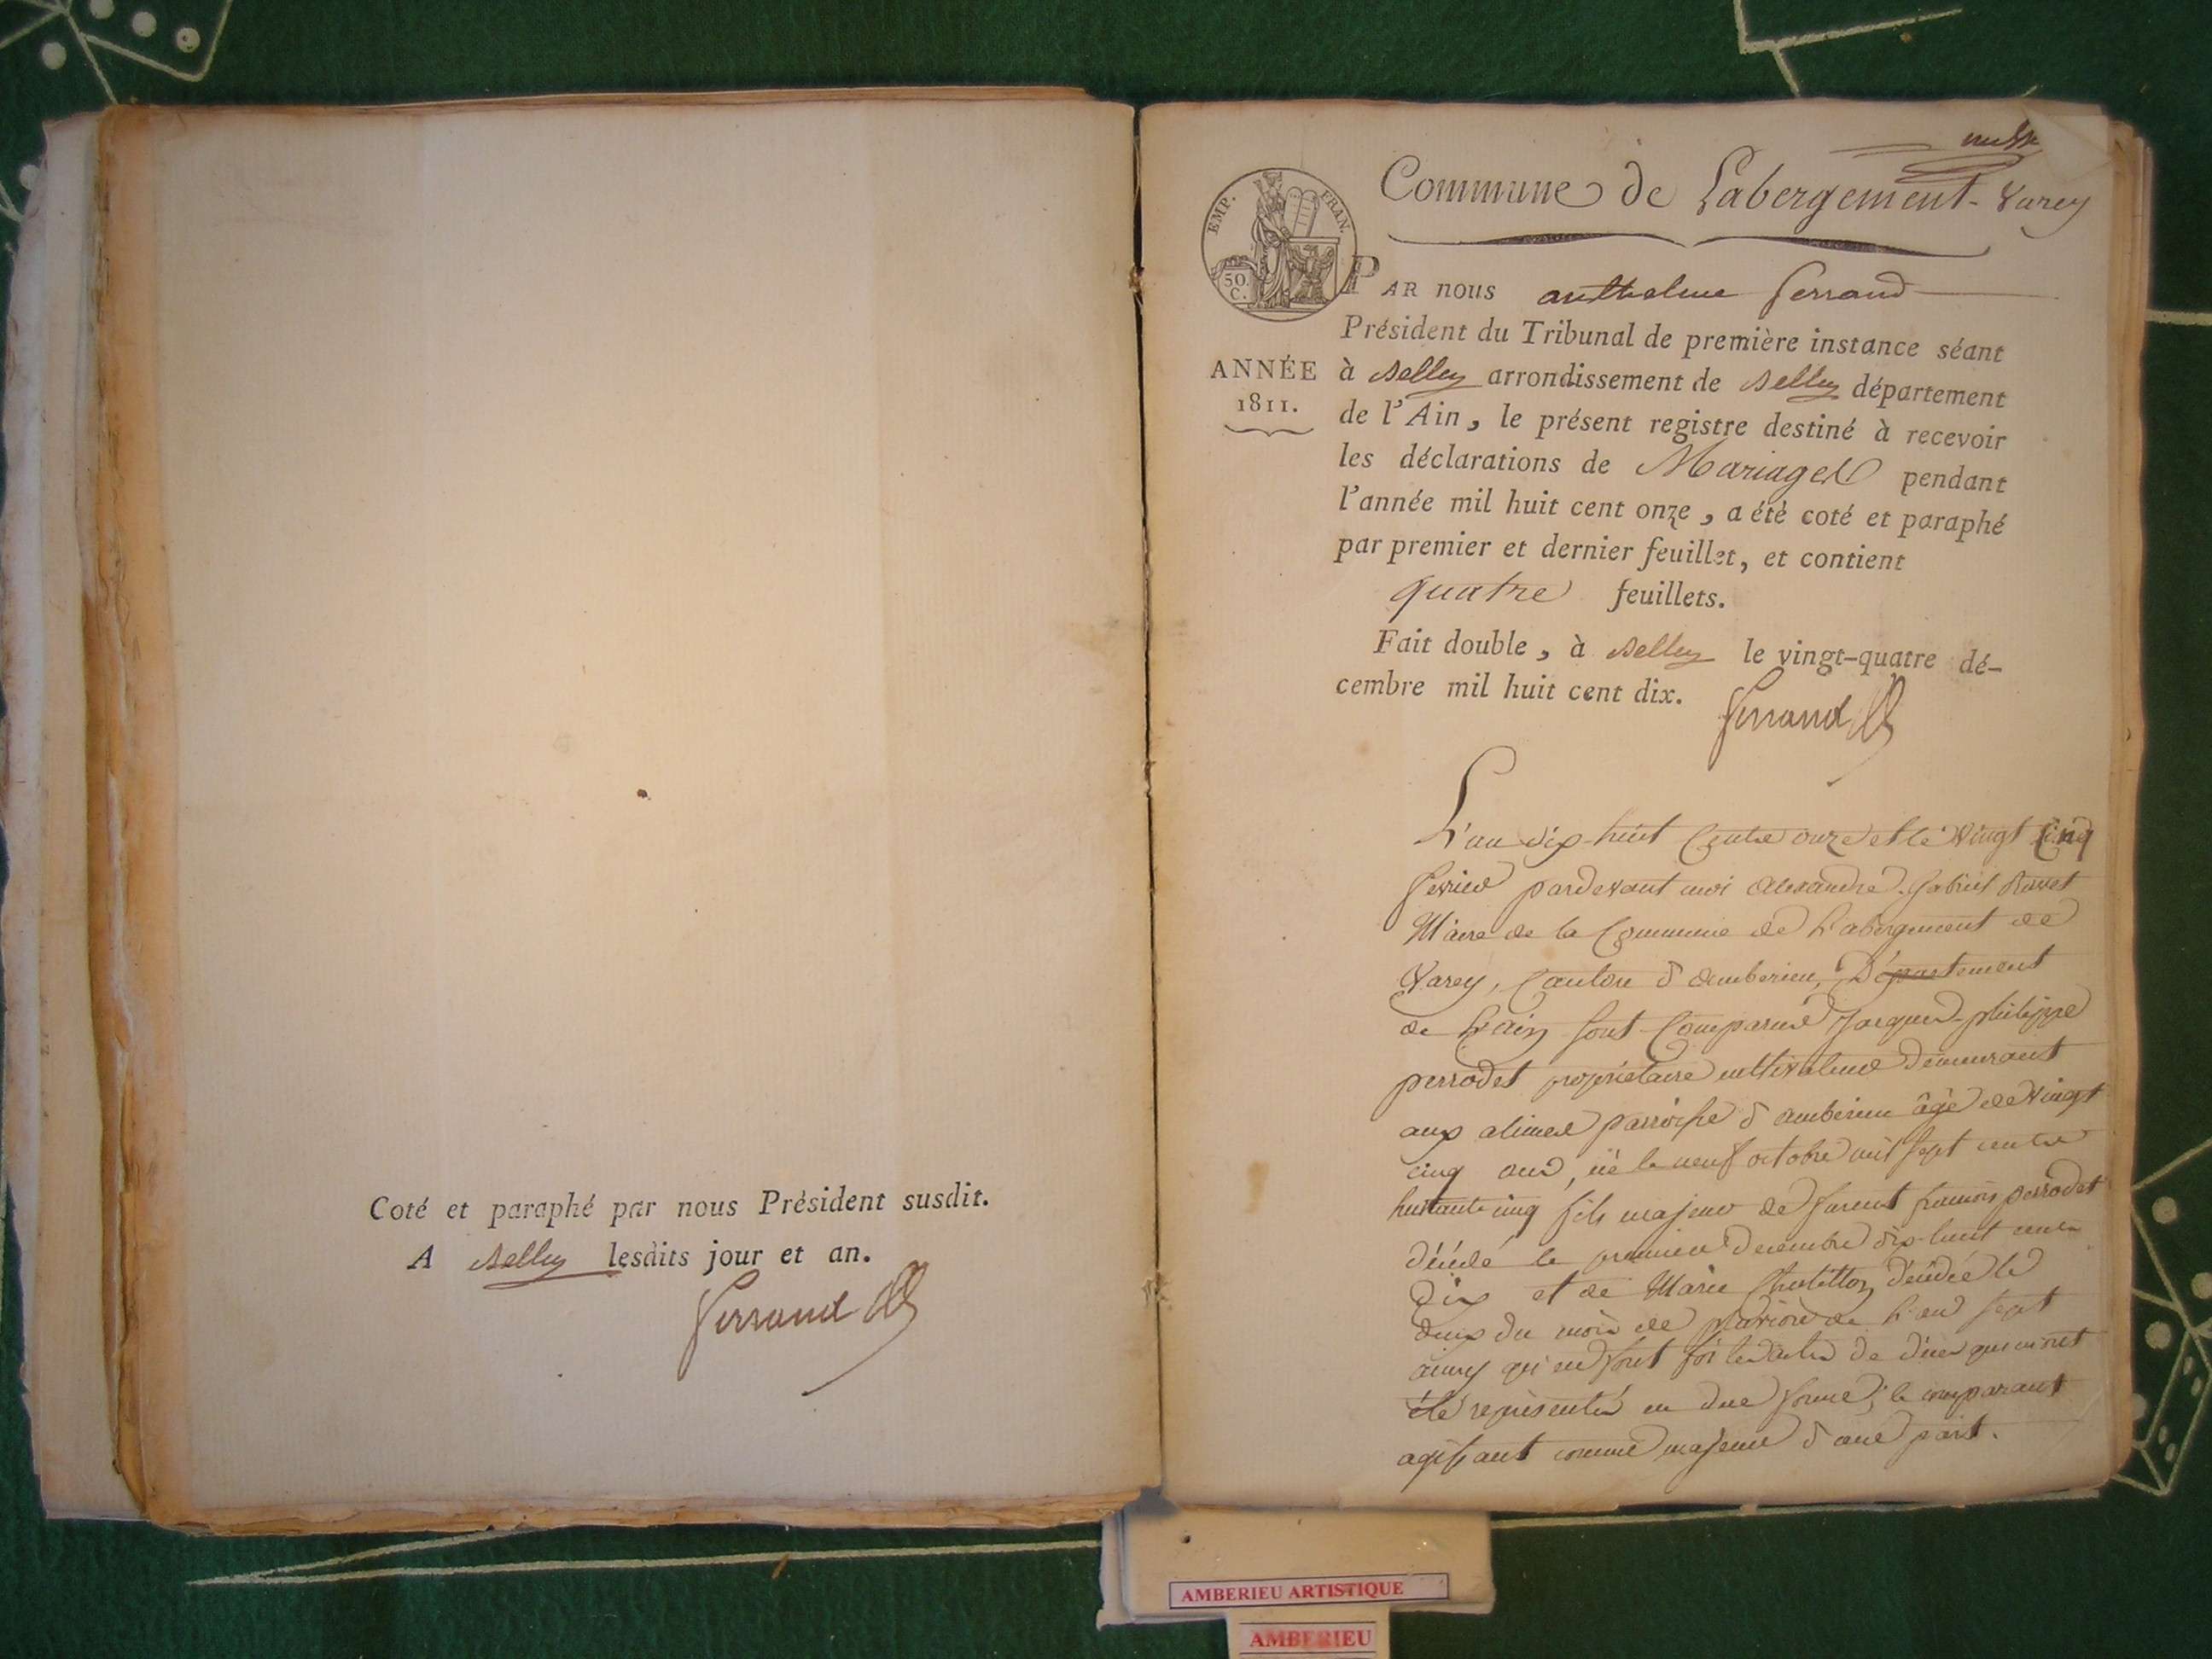 Coté et paraphé par nous Président susdit.
A Belley lesdits jour et an.
Ferrand
Commune de Labergement-Varey
EMP. FRAN.
50 C.
PAR nous anthelme ferrand
Président du Tribunal de première instance séant
ANNÉE
1811.
à Belley arrondissement de Belley département
de l'Ain, le présent registre destiné à recevoir
les déclarations de Mariages pendant
l'année mil huit cent onze, a été coté et paraphé
par premier et dernier feuillet, et contient
quatre feuillets.
Fait double, à Belley le vingt-quatre dé-
cembre mil huit cent dix.
Ferrand
L'an dix-huit Cents onze et le vingt Cinq
fevrier pardevant moi alexandre Gabriel
Maire de la Commune de Labergement de
Varey, Canton d'amberieu, Département
de Lain sont Comparus Jacques-philippe
perrodet propriétaire cultivateur demeurant
aux alimes parroisse d'amberieu âgé de vingt
cinq ans, né le neuf octobre mil sept cents
huitante cinq fils majeur de françois perrodet
décédé le premier decembre dix-huit cents
Dix et de Marie décédée le
deux du mois de pluviose de L'an sept
ainsy qu'en font foi les actes de décès qui m'ont
été représentés en due forme; le comparant
agissant comme majeur d'une part.
AMBERIEU ARTISTIQUE
AMBERIEU